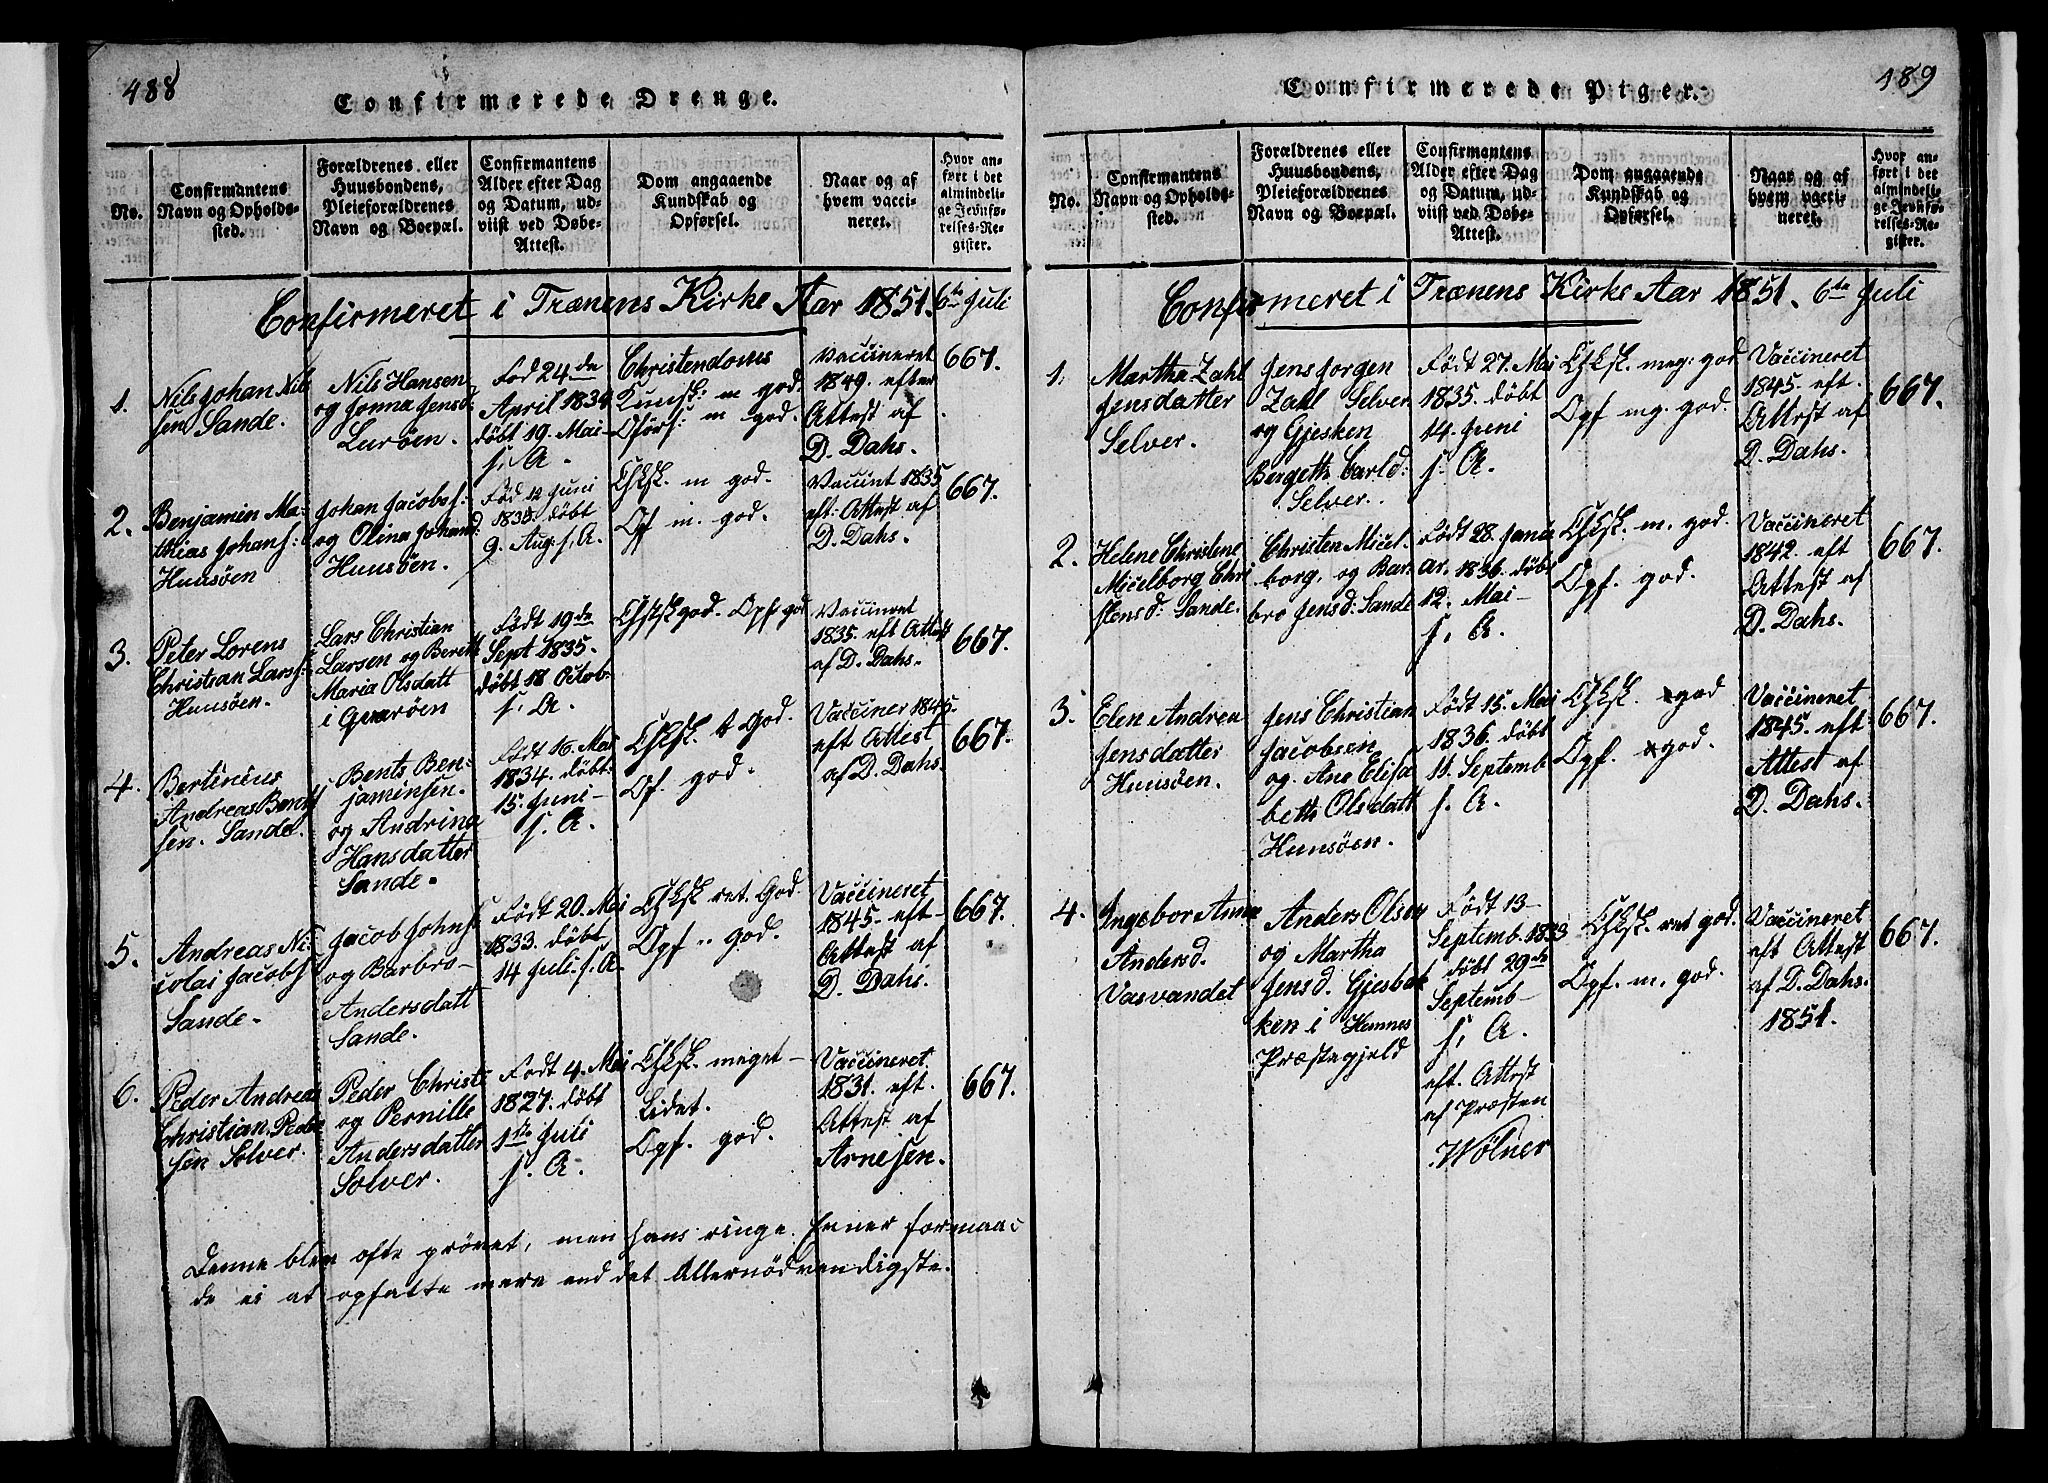 488
Confirmerede Drenge.
No.
Confirmantens
Navn og Opholds-
sted.
Forældrenes eller
Huusbondens,
Pleieforældrenes
Navn og Boepæl.
Confirmantens
Alder efter Dag
og Datum, ud-
viist ved Døbe-
Attest.
Dom angaaende
Kundskab og
Opførsel.
Naar og af
hvem vacci-
neret.
Hvor an-
ført i det
almindeli-
ge Jevnfø-
relses-Re-
gister.
Confirmeret i Trænens Kirke Aar 1851. 6te Juli
1.
Nils Johan Nils
sen Sande.
Nils Hansen
og Jonna Jensd:
Lurøen.
Fød 24de
April 1834
døbt 19. Mai
s. A.
Christendoms
Kundsk: m god.
Opførs: m god.
Vaccineret
1849. efter
Attest af
D. Dahs.
667.
2.
Benjamin Ma-
thias Johans:
Huusøen
Johan Jacobs:
og Olina Johansd
Huusøen.
Fød 12 Juni
1835. døbt
9. Aug: s. A.
Chksk. m god.
Opf m. god.
Vaccint 1835
eft: Attest af
D. Dahs.
667.
3.
Peter Lorens
Christian Lars:
Huusøen.
Lars Christian
Larsen og Berith
Maria Olsdatt
i Qvarøen
Født 19de
Sept 1835.
døbt 18 Octob-
s. A.
Chstsk god. Opf god
Vaccineret
1835. eft Attest
af D. Dahs.
667.
4.
Bertinius
Andreas Bents
sen. Sande.
Bents Ben-
jaminsen.
og Andrina
Hansdatter
Sande.
Født 16. Mai
1834. døbt
15. Juni
s. A.
Chksk. t God.
Of. god.
Vacciner 1845.
eft Attest
af D. Dahs.
667.
5.
Andreas Ni-
colai Jacobs
Sande.
Jacob Johns
og Barbro
Andersdatt
Sande.
Født 20. Mai
1833. døbt
14 Juli. s. A.
Chksk ret. God
Opf " god.
Vaccineret
1845. eft
Attest af
D. Dahs.
667.
6.
Peder Andreas
Christian Peder
sen Solver.
Peder Christi
og Pernille
Andersdatter
Solver.
Født 4. Mai
1827. døbt
1ste Juli
s. A.
Chksk. meget
Lidet.
Opf. god.
Vaccineret
1831. eft.
Attest af
Arnesen.
667.
Denne blev ofte prøvet, men hans ringe Evner formaae
de ei at opfatte mere end det Allernødvendigste.
489
Confirmerede Piger.
No.
Confirmantens
Navn og Opholds-
sted.
Forældrenes eller
Huusbondens,
Pleieforældrenes
Navn og Boepæl.
Confirmantens
Alder efter Dag
og Datum, ud-
viist ved Døbe-
Attest.
Dom angaaende
Kundskab og
Opførsel.
Naar og af
hvem vacci-
neret.
Hvor an-
ført i det
almindeli-
ge Jevnfø-
relses-Re-
gister.
Confirmeret i Trænens Kirke Aar 1851. 6te Juli
1.
Martha Zahl
Jensdatter
Selver.
Jens Jørgen
Zahl Selver
og Gjesken
Bergette Carld:
Selver.
Født 27. Mai
1835. døbt
14. Juni
s. A.
Chksk. meg: god
Opf mg. god.
Vaccineret
1845. eft.
Attest af
D. Dahs.
667.
2.
Helene Christene
Micelborg Chri
stensd: Sande.
Christen Micel-
borg. og Bar-
bro Jensd: Sande
Født 28. Janu
ar. 1836. døbt
12. Mai
s. A.
Chksk. m. god.
Opf. god.
Vaccineret
1842. eft
Attest af
D. Dahs.
667.
3.
Elen Andrea
Jensdatter
Huusøen.
Jens Christian
Jacobsen
og. Ane Elisa
beth Olsdatt
Huusøen.
Født 15. Mai
1836. døbt
11. Septemb
s. A.
Chksk. god
Opf. god.
Vaccineret
1845. eft
Attest af
D. Dahs.
667.
4.
Ingebor Anna
Andersd.
Vasvandet
Anders Olsen
og Martha
Jensd. Gjesbak
ken i Hemnes
Præstegjeld
Født 13
Septemb. 1833
døbt 29de
Septemb
s. A.
eft. Attest
af Præsten
Wølner
Chksk. ret god.
Opf. m. god.
Vaccineret
eft Attest
af D. Dahs.
1851.
667.